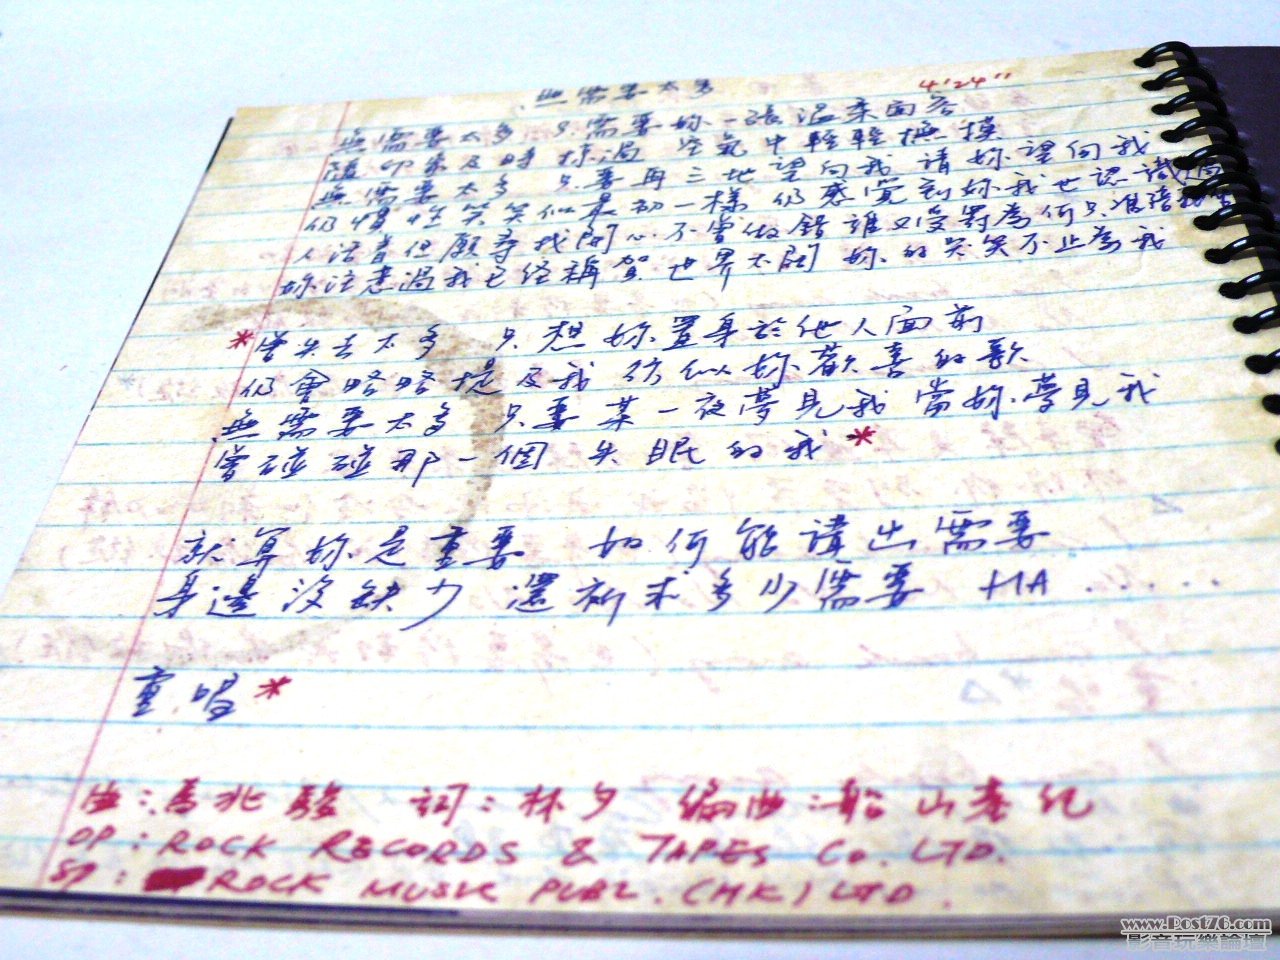 無需要太多
4'24"
無需要太多 只需要妳一張溫柔面容
隨印象及時掠過 空氣中輕輕撫摸
無需要太多 只要再三地望向我 請妳望向我
仍慣性笑笑似最初一樣 仍感覺到妳我也認識過
人活著但願尋找開心不曾做錯誰又受罰為何只准陪我
妳注意過我已經稱賀 世界太闊 妳的哭笑不止為我
*曾失去太多 只想妳置身於他人面前
仍會略略提及我 彷似妳歡喜的歌
無需要太多 只要某一夜夢見我 當妳夢見我
曾碰碰那一個 失眠的我*
就算妳是重要 如何能講出需要
身邊沒缺少 還祈求多少需要 HA.....
重唱*
曲:馬兆駿 詞:林夕 編曲:船山基紀
OP: ROCK RECORDS & TAPES CO. LTD.
SP: ROCK MUSIC PUBL. (HK) LTD.
www.Post76.com
影音玩樂論壇